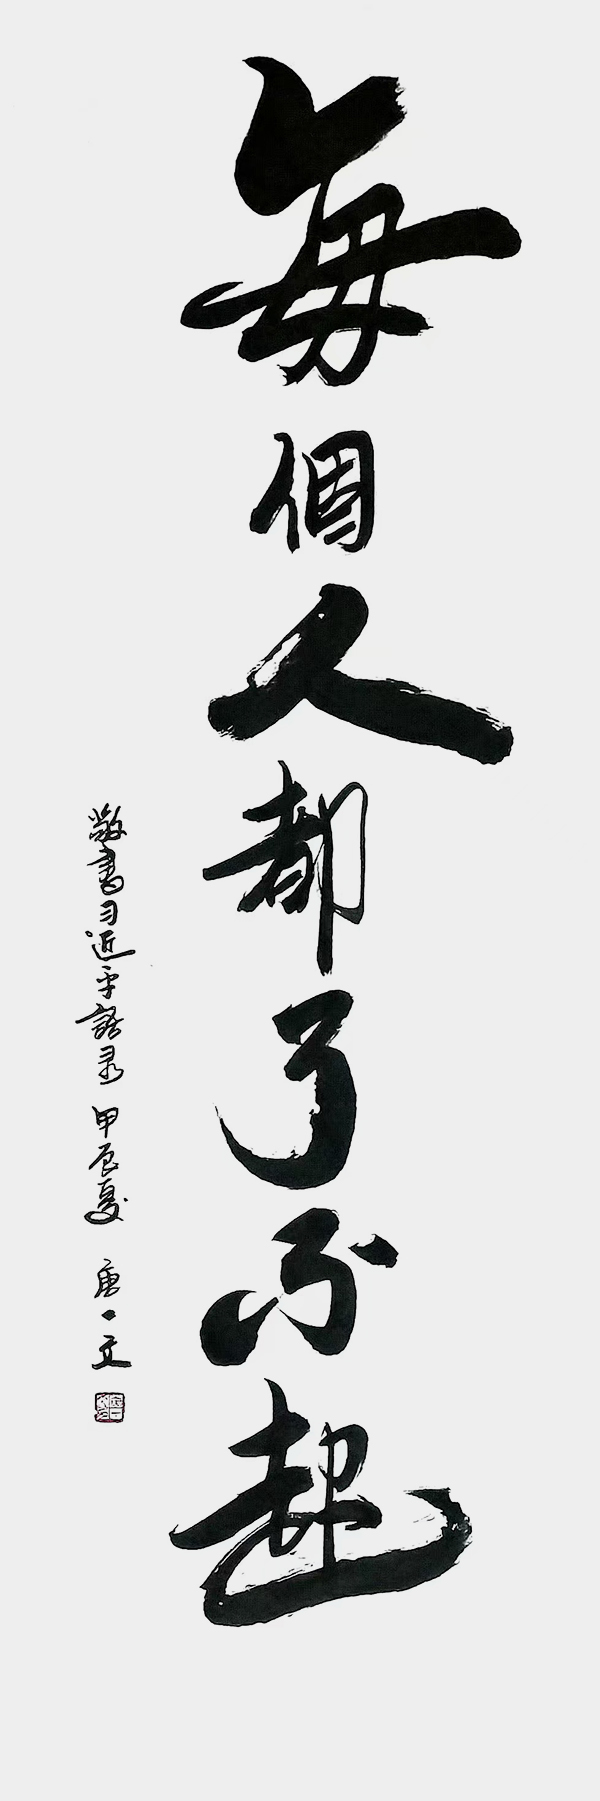 每個人都了不起
敬書习近平語录 甲辰夏 唐一文